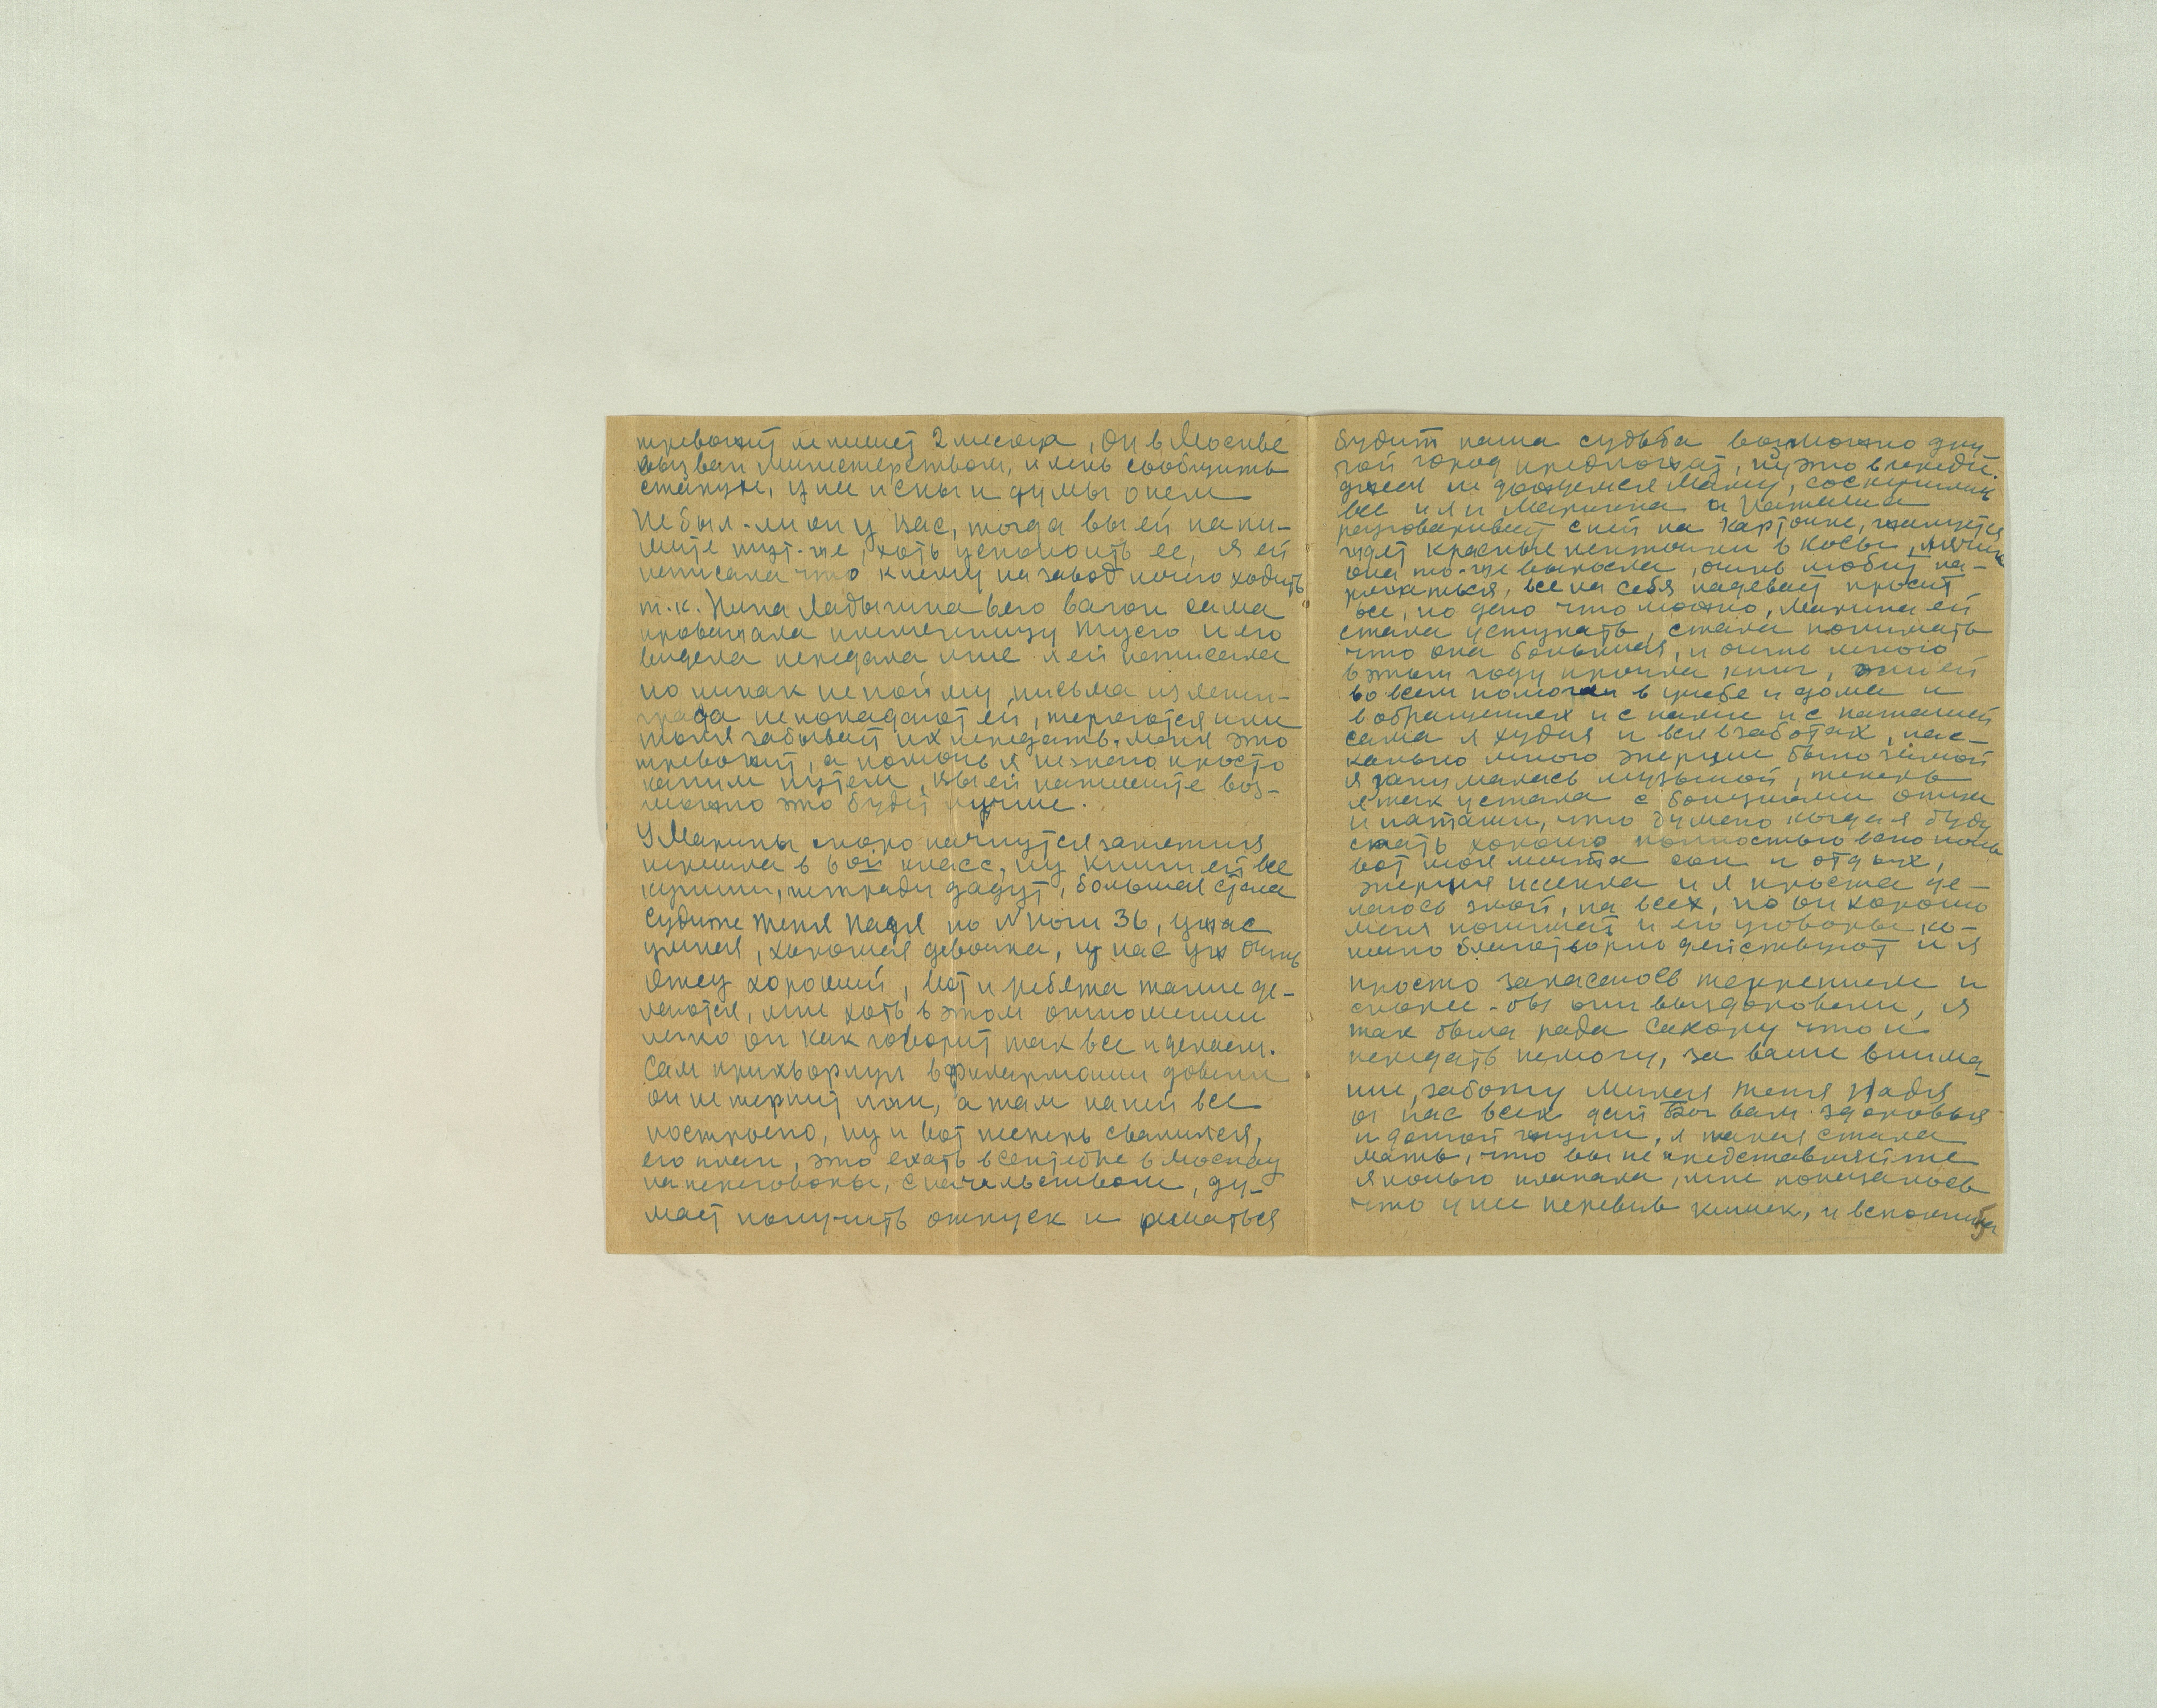 тревожит не пишет 2 месяца, он в Москве
вызван министерством, и лень сообщить
старухе, у нее и сны и думы о нем
Не был-ли он у Вас, тогда вы ей напи-
шите тут-же, хоть успокоить ее, я ей
написала что к нему на завод нечего ходить
т.к. Нина Ладыгина в его вагон сама
провожала племянницу Тусю и его
видела передала мне я ей написала
но никак не пойму, письма из Ленин-
града не попадают ей, теряются или
Толя забывает их передать. меня это
тревожит, а помочь я не знаю просто
каким путем, вы ей напишите воз-
можно это будет лучше.
У Марины скоро начнутся занятия
перешла в 6ой класс, ну книги ей все
купили, тетради дадут, большая стала
судите тетя Надя по № ноги 36, ужас
умная, хорошая девочка, у нас уж очень
отец хороший, вот и ребята такие де-
лаются, мне хоть в этом отношении
легко он как говорит так все и делаем.
Сам прихворнул в филармонии довели
он не терпит лжи, а там на ней все
построено, ну и вот теперь свалился,
его план, это ехать в сентябре в Москву
на переговоры, с начальством, ду-
мает получить отпуск и решаться
будит наша судьба возможно дру-
гой город предложат, ну это впереди.
ждем не дождемся Маму, соскучились
все и я и Мариша а Наташа
разговаривает с ней на карточке, жалуется
ждет красные ленточки в косы,
она то-же выросла, очень любит на-
ряжаться, все на себя надевает просит
все, но даю что можно, Марина ей
стала уступать, стала понимать
что она большая, и очень много
в этом году прочла книг, они ей
во всем помогли в учебе и дома и
в обращениях и с нами и с Наташей
сама я худая и вся в заботах, нас-
колько много энергии было зимой
я занималась музыкой, теперь
я так устала с болезнями отца
и Наташи, что думаю когда я буду
спать хорошо полностью всю ночь
вот моя мечта сон и отдых,
энергия иссякла и я просто де-
лаюсь злой, на всех, но он хорошо
меня понимает и его уговоры ко-
нечно благотворно действуют и я
просто запасаюсь терпением и
скорее-бы они выздоровели, я
так была рада сахару что и
передать немогу, за ваше внима-
ние, заботу милая тетя Надя
от нас всех дай Бог вам здоровья
и долгой жизни, я такая стала
мать, что вы не представляите
я ночью плакала, мне показалось
что у нее перевив кишек, и вспомнила
5